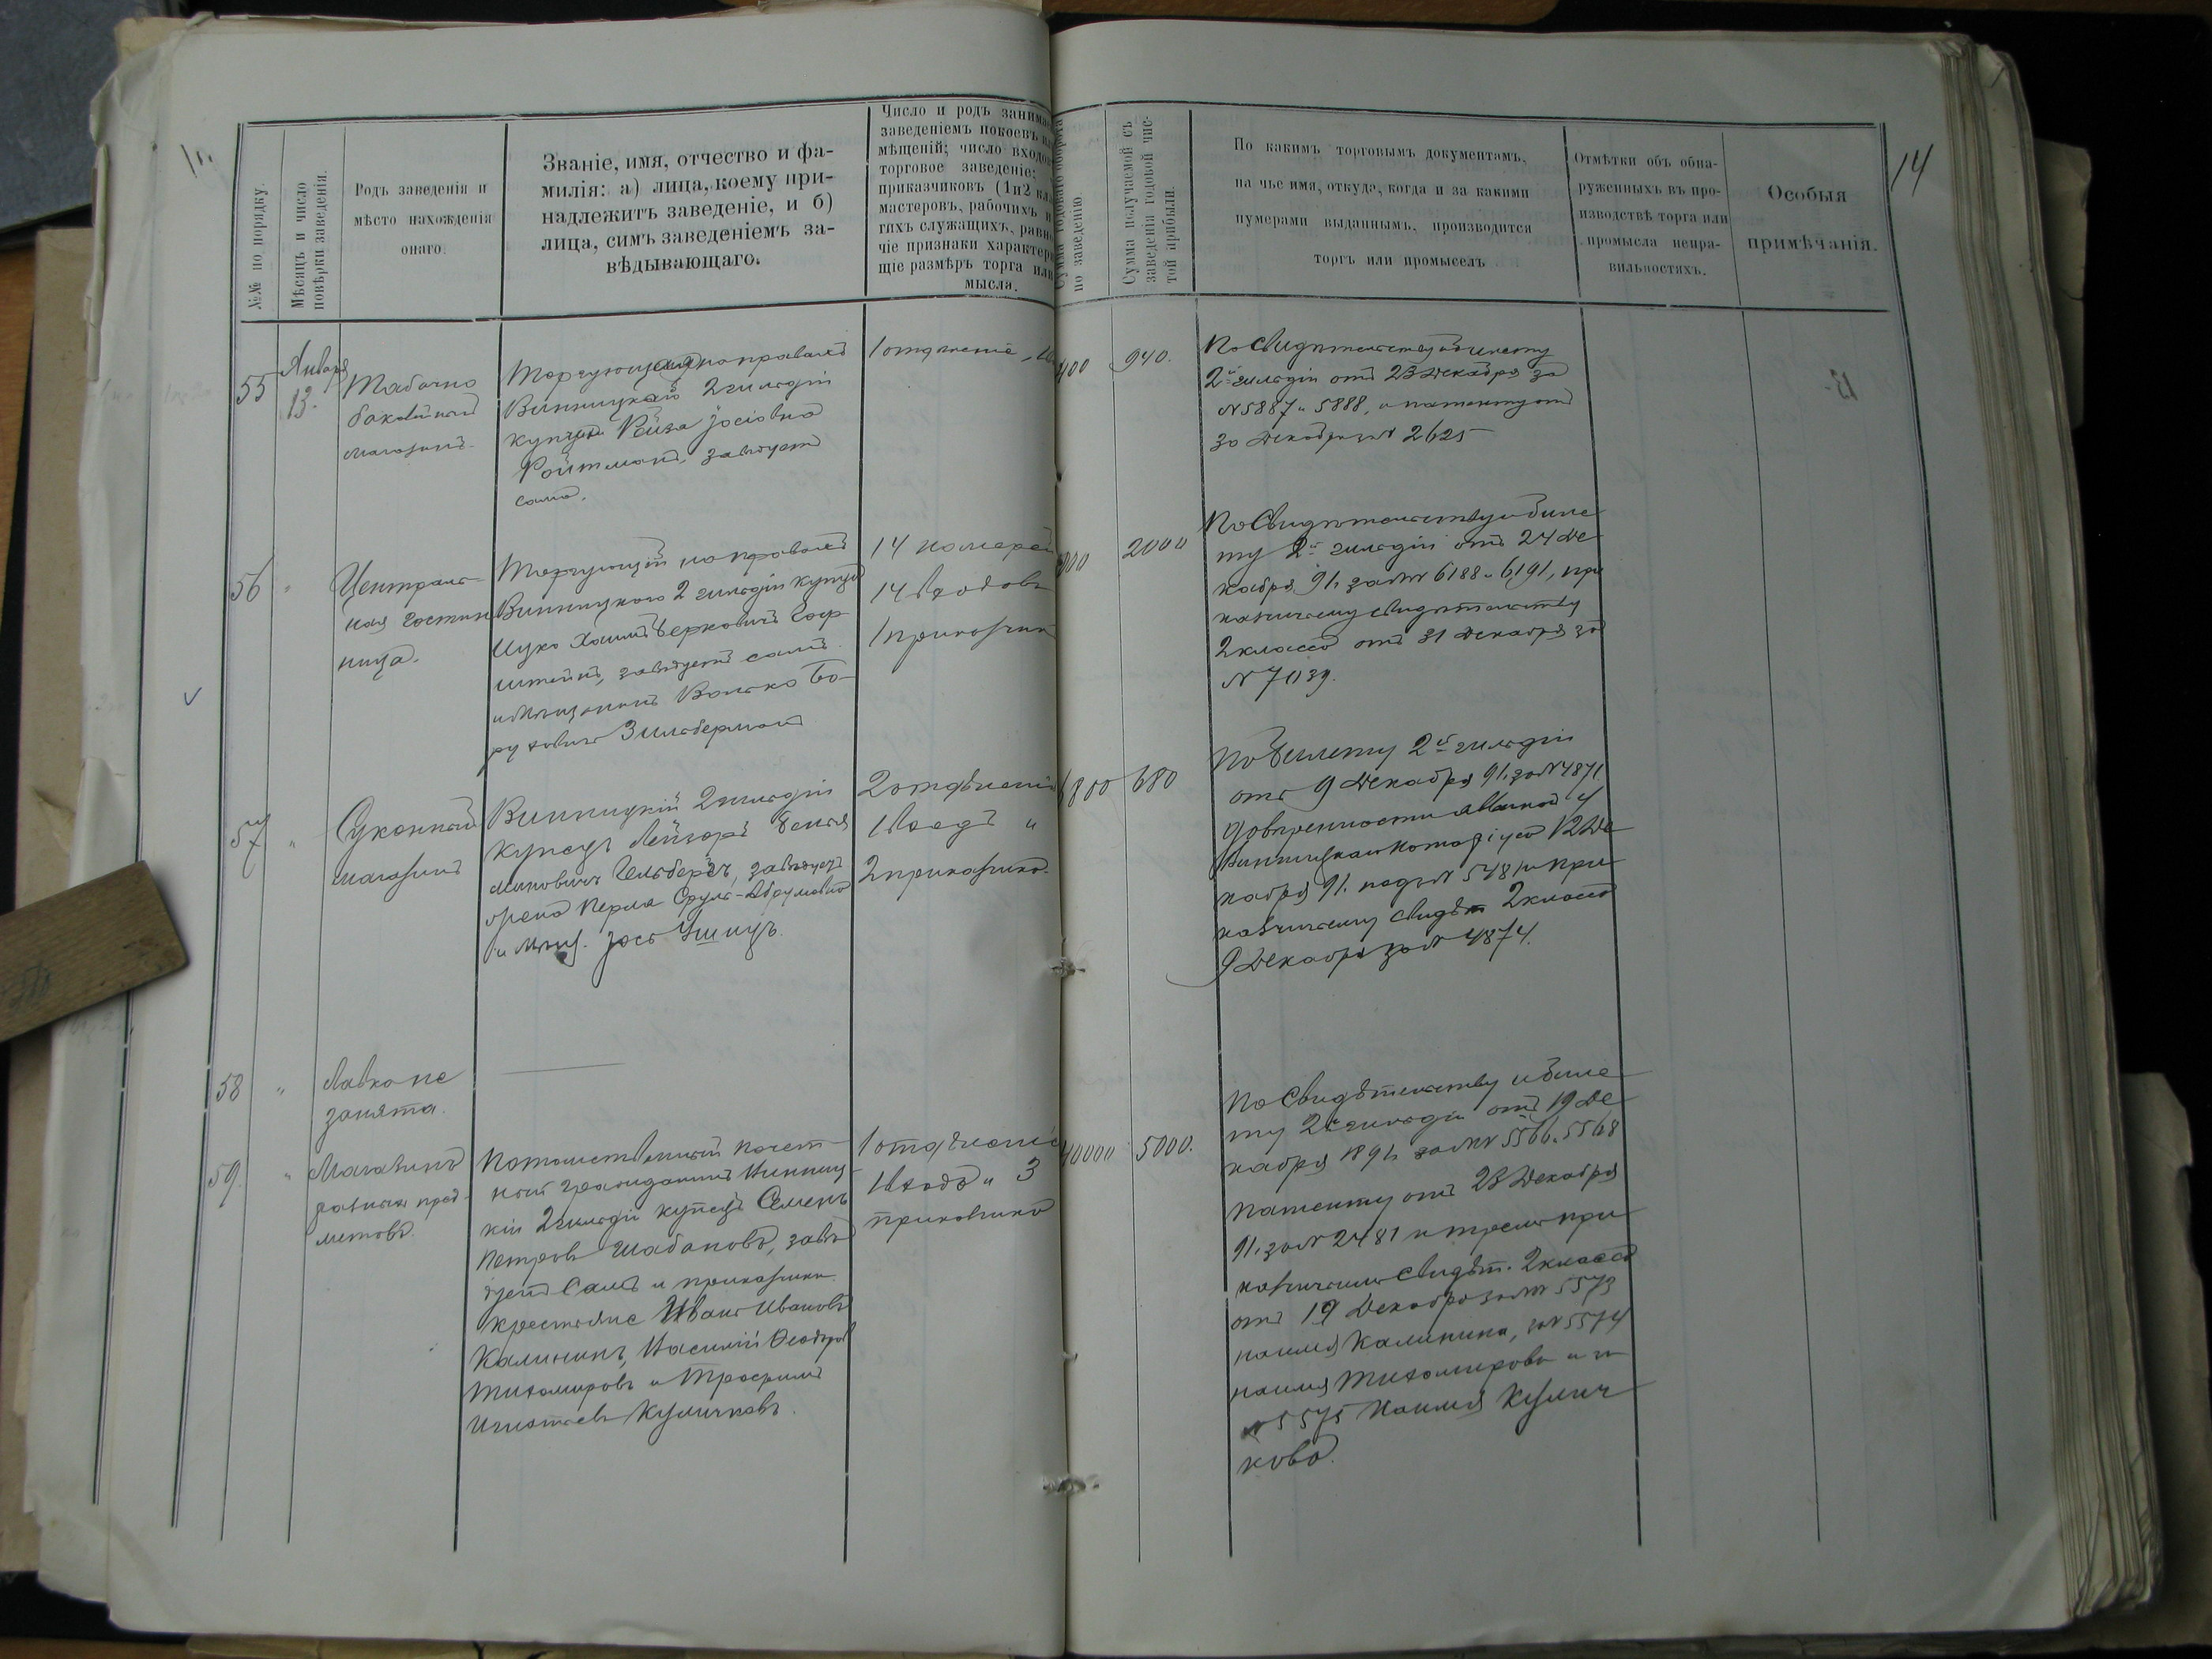 14
№№ по порядку.
Мѣсяцъ и число
повѣрки заведенія.
Родъ заведенія и
мѣсто нахожденія
онаго.
Званіе, имя, отчество и фа-
милія: а) лица, коему при-
надлежитъ заведеніе, и б)
лица, симъ заведеніемъ за-
вѣдывающаго.
Число и родъ занима
заведеніемъ покоевъ
мѣщеній; число входо
торговое заведеніе;
приказчиковъ (1 и 2 кл
мастеровъ, рабочихъ и
гихъ служащихъ, равно
чіе признаки характери
щіе размѣръ торга или
мысла.
Сумма годоваго оборота
по заведенію.
Сумма получаемой съ
заведенія годовой чис-
той прибыли.
По какимъ торговымъ документамъ,
на чье имя, откуда, когда и за какими
нумерами выданнымъ, производится
торгъ или промыселъ
Отмѣтки объ обна-
руженныхъ въ про-
изводствѣ торга или
промысла непра-
вильностяхъ.
Особыя
примѣчанія.
55
Января
13.
Табачно
бакалейный
магазинъ
Торгующая на правахъ
Винницкой 2 гильдіи
купчихи Рейза Іосіовна
Ройтманъ, завѣдуетъ
сама.
1 отдѣленіе,
400
940.
По Свидѣтельству и билету
2й гильдіи отъ 23 Декабря за
№ 5887 и 5888, и патенту отъ
30 Декабря за № 2625
56
"
Централь-
ная гостин
ница.
Торгующій на правахъ
Винницкаго 2 гильдіи купца
Ицко Хаимъ Берковичъ Гоф-
штейнъ, завѣдуетъ самъ
и Мѣщанинъ Волько Бо-
руховичъ Зильберманъ
14 номеровъ
14 входовъ
1 приказчикъ
000
2000
По Свидѣтельству и биле
ту 2й гильдіи отъ 24 Де
кабря 91г. за №№ 6188 и 6191, при
кащичьему свидѣтельству
2 класса отъ 31 Декабря за
№ 7039.
57
"
Суконный
магазинъ
Винницкій 2 гильдіи
купецъ Лейзоръ Бенья
миновичъ Гельберъ, завѣдуетъ
Перля Сруль-Абрумовна
и Мѣщ. Іосъ
2 отдѣленія
1 входъ и
2 приказчика.
6800
680
По билету 2й гильдіи
отъ 9 Декабря 91г. за № 4871
довѣренности данной у
Винницкаго Нотаріуса 12 Де
кабря 91. подъ № 5481 и при
кащичьему свидѣт. 2 класса
9 Декабря за № 4874.
58
"
Лавка не
занята.
59.
"
Магазинъ
разныхъ пред-
метовъ.
Потомственный почет-
ный гражданинъ Винниц-
кій 2 гильдіи купецъ Семенъ
Петровъ Шабановъ, завѣ
дуетъ Самъ и приказчики
крестьяне Иванъ Ивановъ
Калининъ, Василій Ѳедоровъ
Тихомировъ и Трофимъ
Игнатьевъ Куличковъ.
1 отдѣленіе
1 входъ и 3
приказчика
40000
5000.
По Свидѣтельству и биле
ту 2й гильдіи отъ 19 Де
кабря 1891г. за №№ 5566 и 5568
патенту отъ 23 Декабря
91. за № 2481 и тремъ при
кащичьимъ свидѣт. 2 класса
отъ 19 Декабря за №№ 5573
на имя Калинина, за № 5574
на имя Тихомирова и за
№ 5575 на имя Кулич
кова.